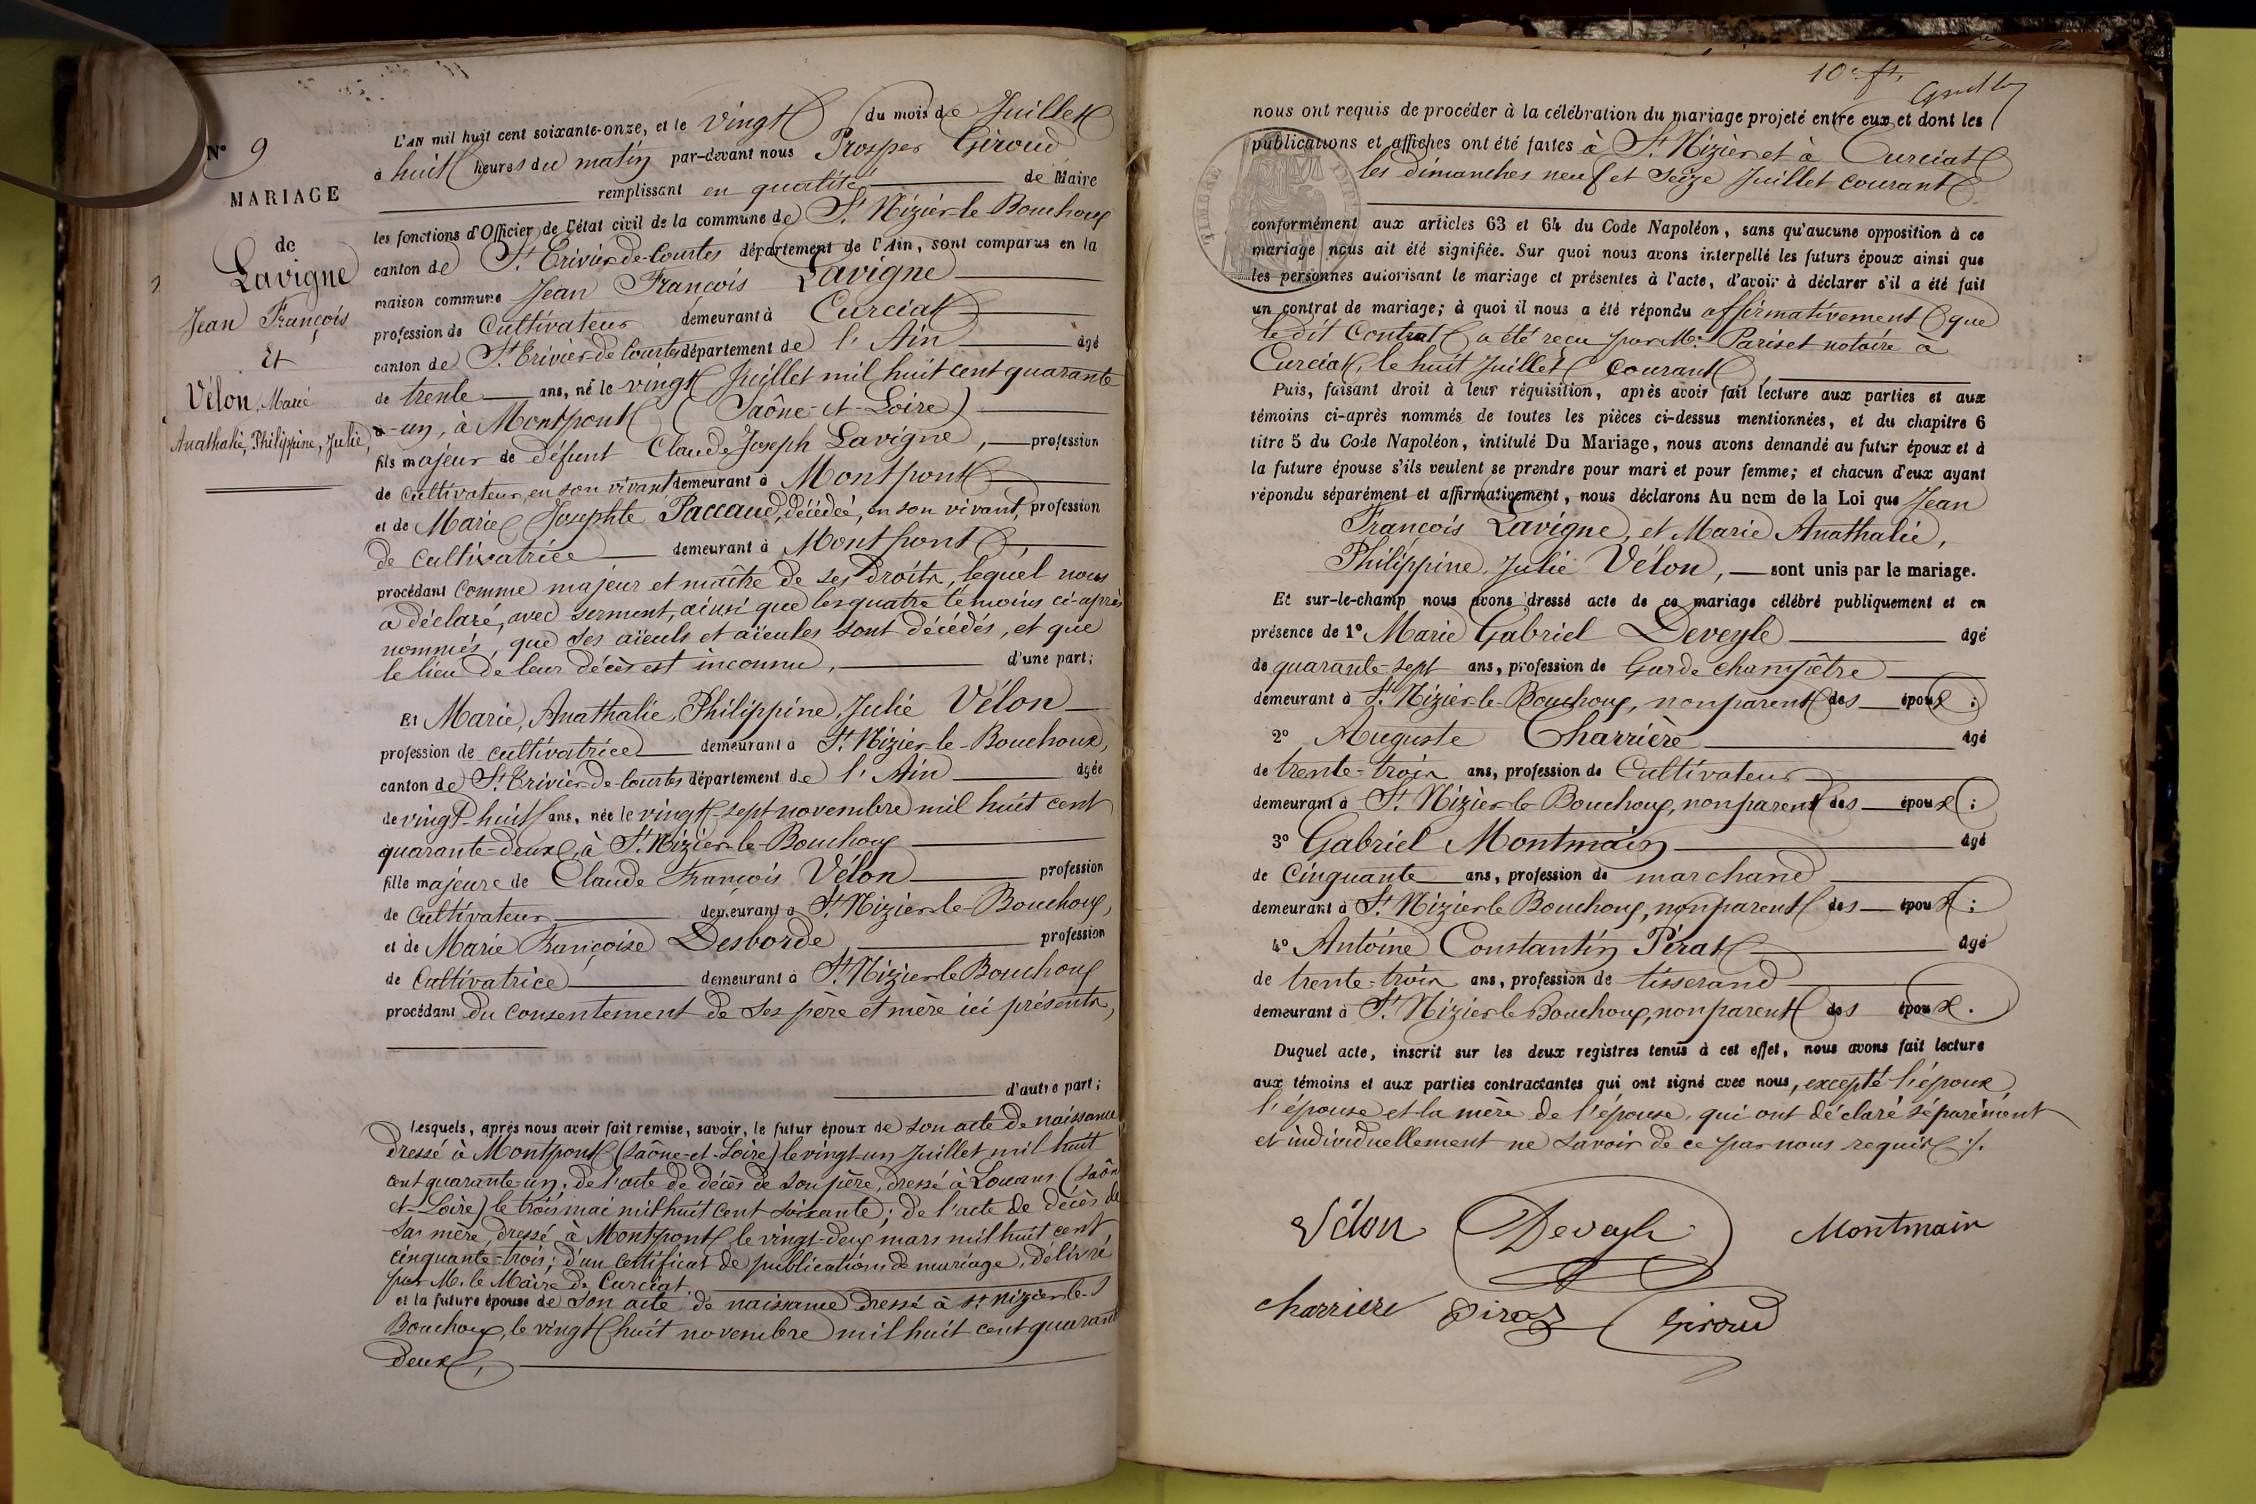 N° 9
MARIAGE
de
Lavigne
Jean François
Et
Vélon, Marie
Anathalie, Philippine, Julie,
L'an mil huit cent soixante-onze, et le vingt du mois de Juillet
à huit heures du matin par-devant nous Prosper Giroud
remplissant en qualité de Maire
les fonctions d'Officier de l'état civil de la commune de St Nizier-le-Bouchoux
canton de St Trivier-de-Courtes département de l'Ain, sont comparus en la
maison commune Jean François Lavigne
profession de Cultivateur demeurant à Curciat
canton de St Trivier-de-Courtes département de l'Ain âgé
de trente ans, né le vingt Juillet mil huit cent quarante
-un, à Montpont (Saône-et-Loire)
fils majeur de défunt Claude Joseph Lavigne, profession
de Cultivateur, en son vivant demeurant à Montpont
et de Marie Josephte Paccaud, décédée, en son vivant, profession
de Cultivatrice demeurant à Montpont,
procédant comme majeur et maître de ses droits, lequel nous
a déclaré, avec serment, ainsi que les quatre témoins ci-après
nommés, que ses aïeuls et aïeules sont décédés, et que
le lieu de leur décès est inconnu, d'une part;
Et Marie, Anathalie, Philippine, Julie Vélon
profession de cultivatrice demeurant à St Nizier-le-Bouchoux,
canton de St Trivier-de-Courtes département de l'Ain âgée
de vingt-huit ans, née le vingt-sept novembre mil huit cent
quarante-deux, à St Nizier-le-Bouchoux
fille majeure de Claude François Vélon profession
de Cultivateur demeurant à St Nizier-le-Bouchoux,
et de Marie Françoise Desborde, profession
de Cultivatrice demeurant à St Nizier-le-Bouchoux
procédant du consentement de ses père et mère ici présents,
d'autre part;
Lesquels, après nous avoir fait remise, savoir, le futur époux de son acte de naissance
dressé à Montpont (Saône-et-Loire) le vingt-un Juillet mil huit
cent quarante-un; de l'acte de décès de son père, dressé à Louhans (Saône
et-Loire) le trois mai mil huit cent soixante; de l'acte de décès de
sa mère, dressé à Montpont le vingt-deux mars mil huit cent
cinquante-trois; d'un certificat de publications de mariage, délivré
par M. le Maire de Curciat.
et la future épouse de son acte de naissance dressé à St Nizier-le-
Bouchoux, le vingt-huit novembre mil huit cent quarante
deux,
10e ft.
nous ont requis de procéder à la célébration du mariage projeté entre eux et dont les
publications et affiches ont été faites à St Nizier et à Curciat
les dimanches neuf et seize Juillet courant
conformément aux articles 63 et 64 du Code Napoléon, sans qu'aucune opposition à ce
mariage nous ait été signifiée. Sur quoi nous avons interpellé les futurs époux ainsi que
les personnes autorisant le mariage et présentes à l'acte, d'avoir à déclarer s'il a été fait
un contrat de mariage; à quoi il nous a été répondu affirmativement que
le dit Contrat a été reçu par Me Pariset notaire à
Curciat, le huit Juillet courant,
Puis, faisant droit à leur réquisition, après avoir fait lecture aux parties et aux
témoins ci-après nommés de toutes les pièces ci-dessus mentionnées, et du chapitre 6
titre 5 du Code Napoléon, intitulé Du Mariage, nous avons demandé au futur époux et à
la future épouse s'ils veulent se prendre pour mari et pour femme; et chacun d'eux ayant
répondu séparément et affirmativement, nous déclarons Au nom de la Loi que Jean
François Lavigne, et Marie Anathalie,
Philippine, Julie Vélon, sont unis par le mariage.
Et sur-le-champ nous avons dressé acte de ce mariage célébré publiquement et en
présence de 1° Marie Gabriel Deveyle âgé
de quarante-sept ans, profession de Garde champêtre
demeurant à St Nizier-le-Bouchoux, non parent des époux;
2° Auguste Charrière âgé
de trente-trois ans, profession de Cultivateur
demeurant à St Nizier-le-Bouchoux, non parent des époux;
3° Gabriel Montmain âgé
de Cinquante ans, profession de marchand
demeurant à St Nizier-le-Bouchoux, non parent des époux;
4° Antoine Constantin Pirat âgé
de trente-trois ans, profession de tisserand
demeurant à St Nizier-le-Bouchoux, non parent des époux.
Duquel acte, inscrit sur les deux registres tenus à cet effet, nous avons fait lecture
aux témoins et aux parties contractantes qui ont signé avec nous, excepté l'époux
l'épouse et la mère de l'épouse, qui ont déclaré séparément
et individuellement ne savoir de ce par nous requis ./.
Vélon Deveyle Montmain
charriere Pirat Giroud